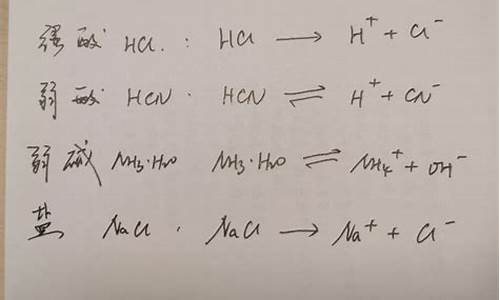 强酸 HCl : HCl → H⁺ + Cl⁻
弱酸 HCN · HCN ⇌ H⁺ + CN⁻
弱碱 NH₃·H₂O NH₃·H₂O ⇌ NH₄⁺ + OH⁻
盐 NaCl · NaCl → Na⁺ + Cl⁻